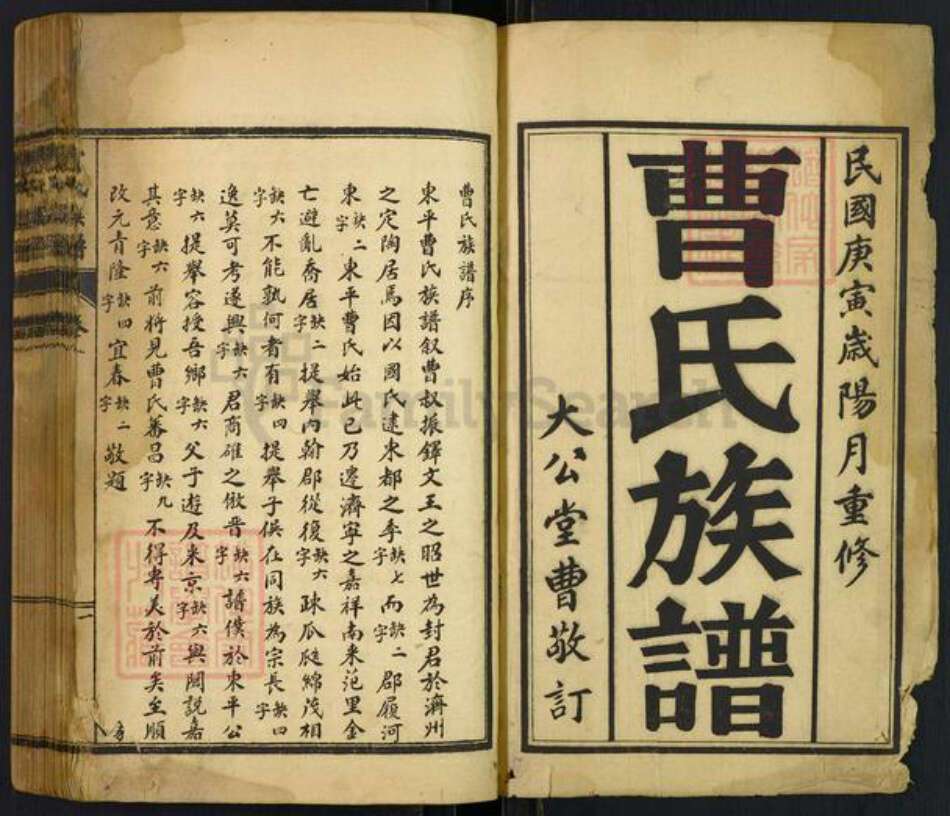 民國庚寅歲陽月重修
曹氏族譜
大公堂曹敬訂
曹氏族譜序
東平曹氏族譜叙曹叔振鐸文王之昭世為封君於濟州
之定陶居焉因以國氏逮東都之季缺七字而缺二字郡履河
東缺二字東平曹氏始此已乃遷濟寧之嘉祥南来范里金
亡避亂喬居缺二字提舉内翰郡從復缺六字疎瓜瓞綿茂相
缺六字不能孰何者有缺四字提舉子俣在同族為宗長缺四字
逸莫可考遂興缺六字君商確之倣晋缺六字譜僕於東平公
缺六字提舉容授吾鄉缺六字父子遊及来京缺六字與聞説嘉
其意缺六字前将見曹氏蕃昌缺九字不得専美於前矣至順
改元青隆缺四字宜春缺二字敬題
FamilySearch